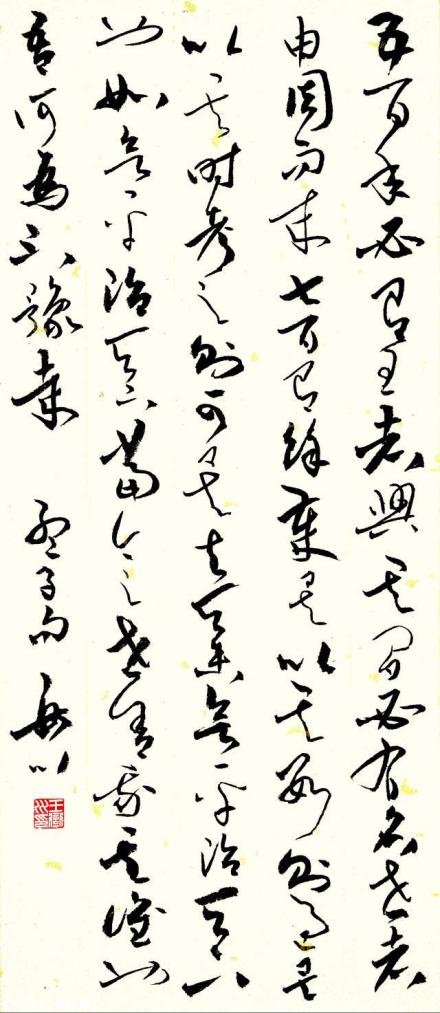 五百年必有王者興其間必有名世者
由周而來七百有餘歲矣以其數則過矣
以其時考之則可矣夫天未欲平治天下
也如欲平治天下當今之世舍我其誰也
吾何為不豫哉 孟子句